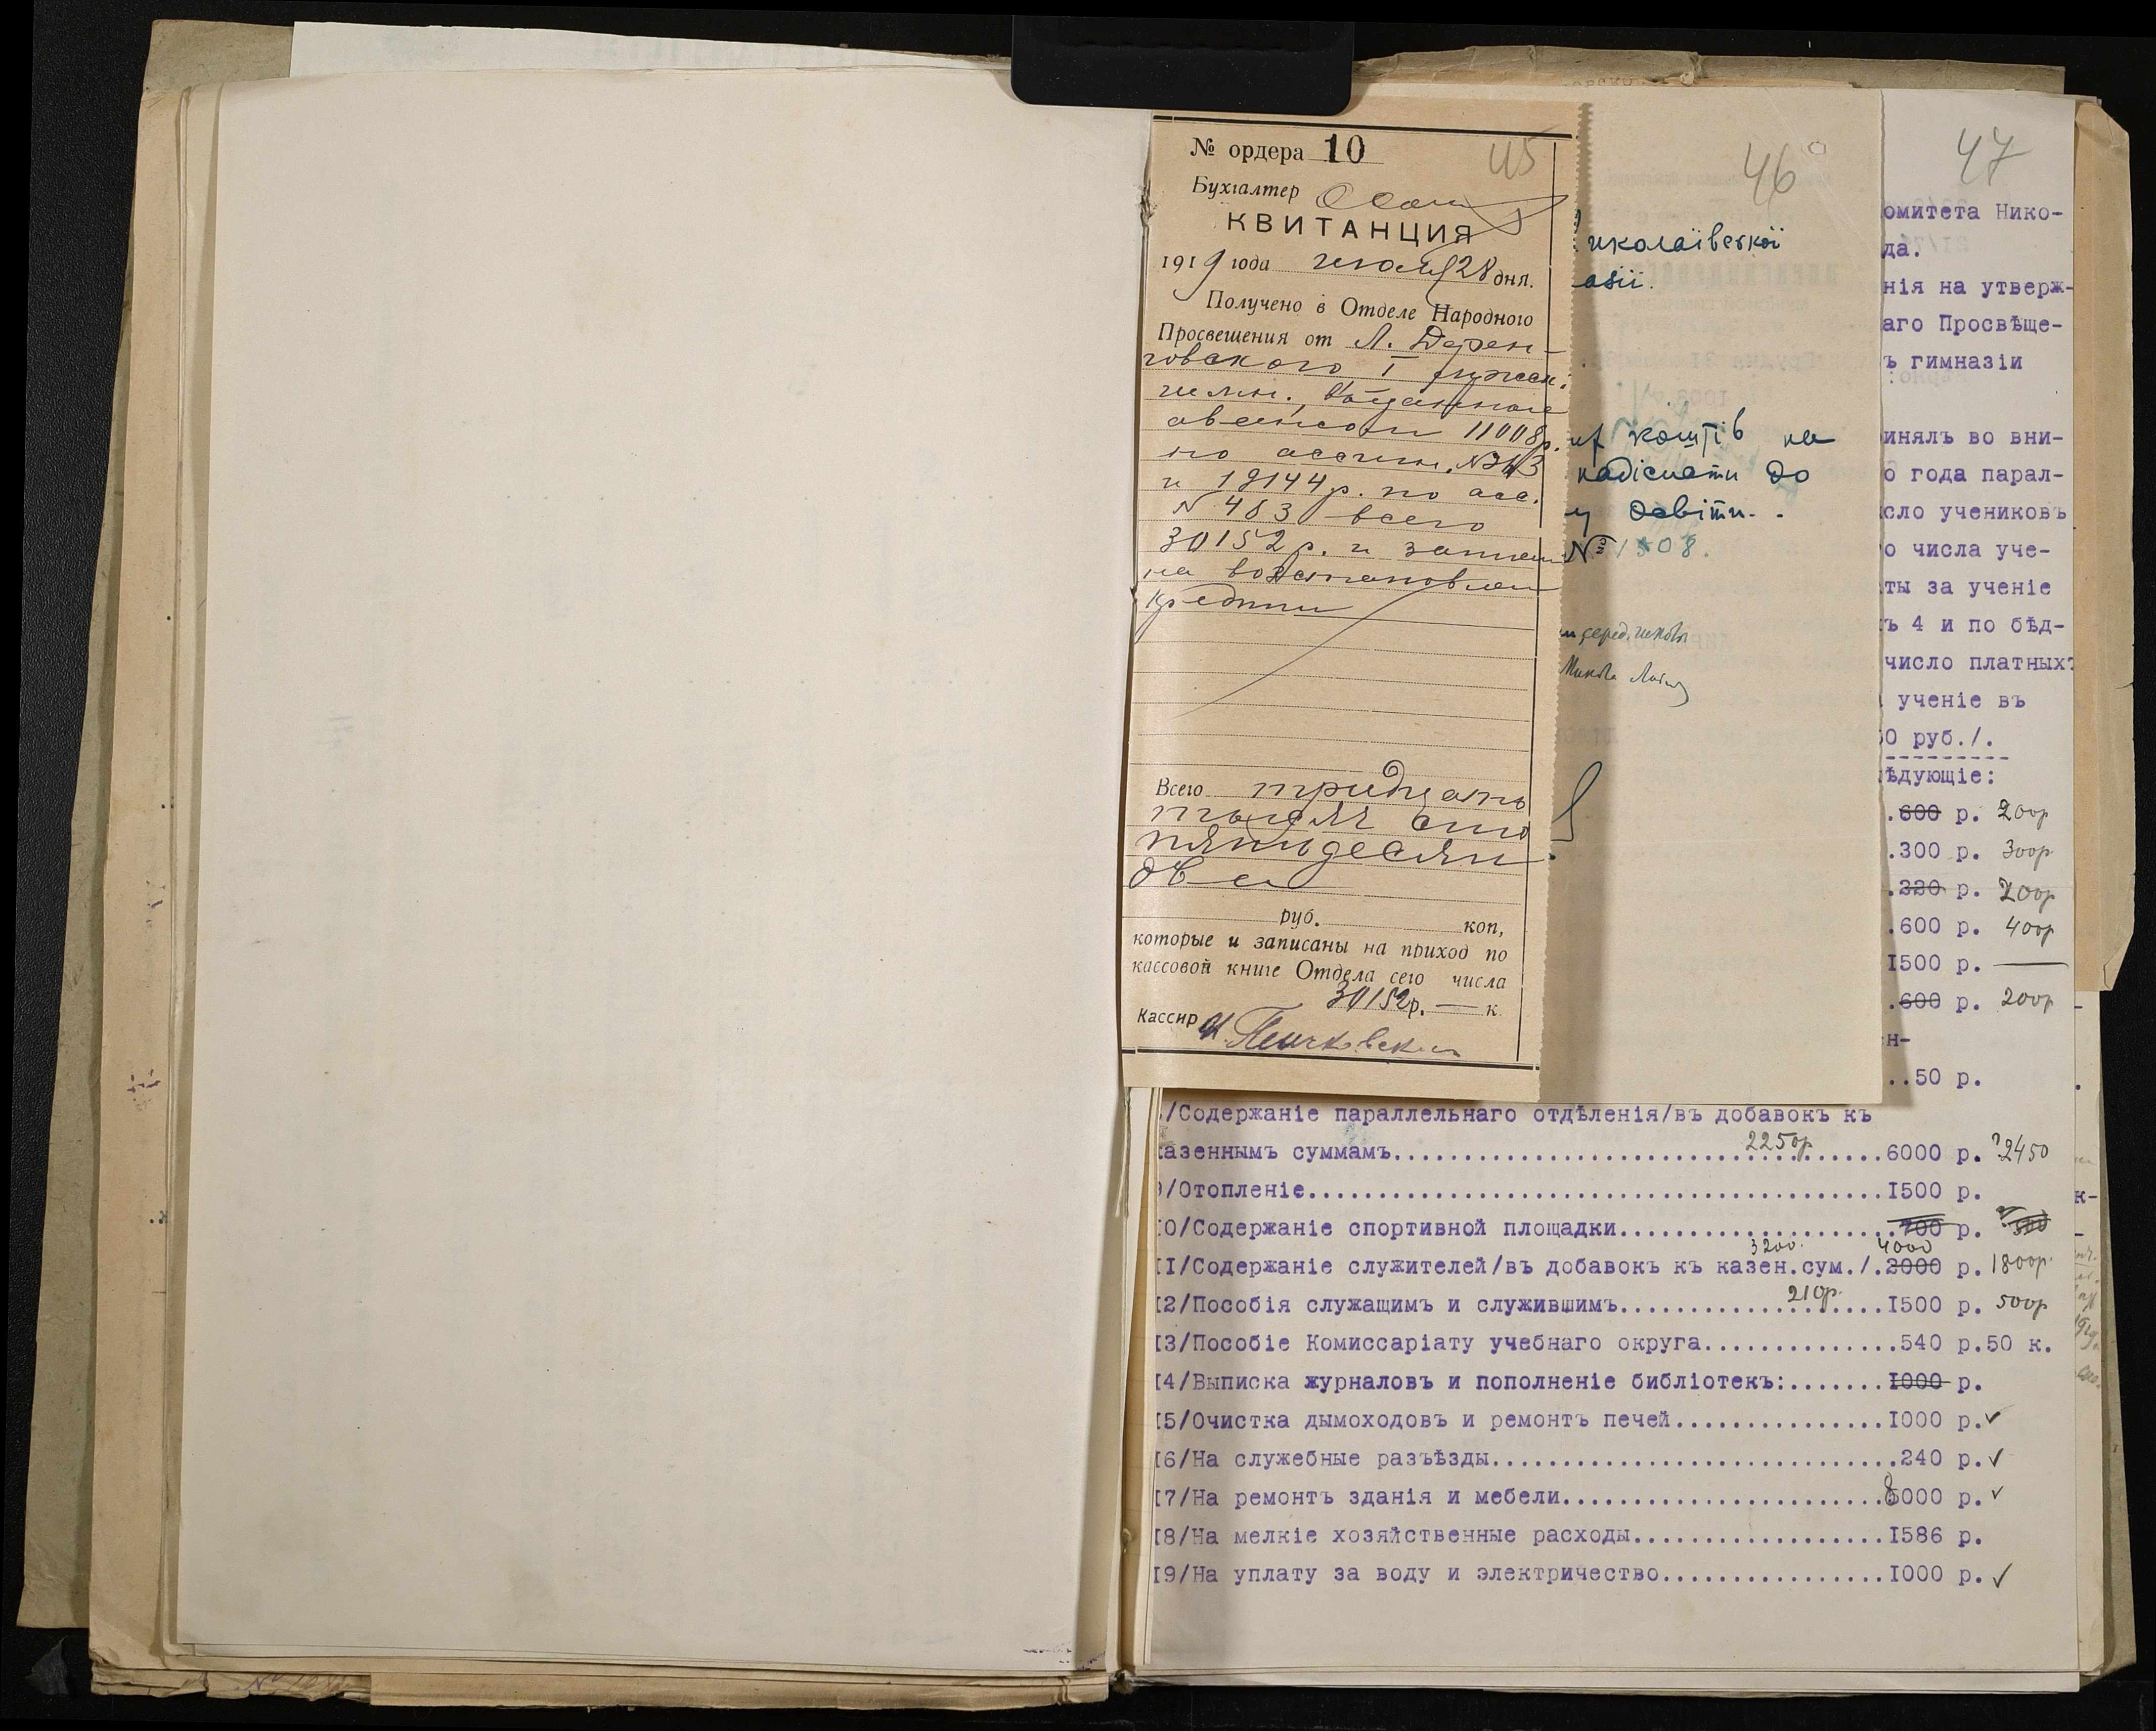 № ордера 10
45
Бухгалтер
КВИТАНЦИЯ
1919 года июля 28 дня.
Получено в Отделе Народного
Просвещения от Л. Дерен-
говского I мужск.
гимн., выданные
авансом 11008р.
по ассигн. №343
и 19144р. по асс.
N 483 всего
30152р. и запис
на восстановлен
кредита
Всего тридцать
тысяч сто
пятьдесят
два
руб. коп,
которые и записаны на приход по
кассовой книге Отдела сего числа
30152р. — к.
Кассир
46
иколаївської
азії.
коштів на
надіслати до
у Освіти.
№ 1308.
47
омитета Нико-
да.
нія на утверж-
аго Просвѣще-
ъ гимназіи
инялъ во вни-
о года парал-
сло учениковъ
о числа уче-
ты за ученіе
ъ 4 и по бѣд-
число платныхъ
ученіе въ
0 руб./.
ѣдующіе:
.600 р. 200р
.300 р. 300р
.320 р. 200р
.600 р. 400р
I500 р. —
.600 р. 200р
н-
..50 р.
./Содержаніе параллельнаго отдѣленія/въ добавокъ къ
2250р
казеннымъ суммамъ...........................................6000 р. ?2450
9/Отопленіе...................................................I500 р.
I0/Содержаніе спортивной площадки........................700 р. 500
3200. 4000
II/Содержаніе служителей/въ добавокъ къ казен.сум./.2000 р. 1800р.
210р.
I2/Пособія служащимъ и служившимъ.......................I500 р. 500р
I3/Пособіе Комиссаріату учебнаго округа...............540 р.50 к.
I4/Выписка журналовъ и пополненіе библіотекъ:.......I000 р.
I5/Очистка дымоходовъ и ремонтъ печей.................I000 р.✓
I6/На служебные разъѣзды...................................240 р.✓
I7/На ремонтъ зданія и мебели............................8000 р.✓
I8/На мелкіе хозяйственные расходы.....................I586 р.
I9/На уплату за воду и электричество...................I000 р.✓